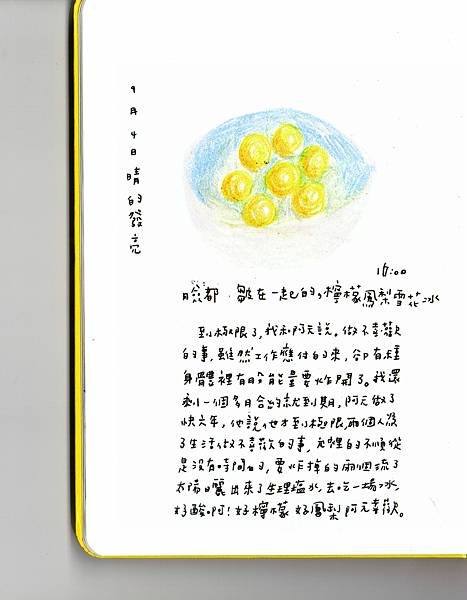 9月4日晴的發亮
16:00
臉都皺在一起的,檸檬鳳梨雪花冰
到極限了,我和阿元說。做不喜歡
的事,雖然工作應付的來,卻有種
身體裡有股能量要炸開了。我還
剩一個多月合約就到期,阿元做了
快六年,他說他才到極限,兩個人為
了生活做不喜歡的事,裡的不順從
是沒有時間的,要炸掉的兩個流了
太陽曬出來了生理鹽水,去吃一場冰,
好酸啊!好檸檬 好鳳梨 阿元喜歡。